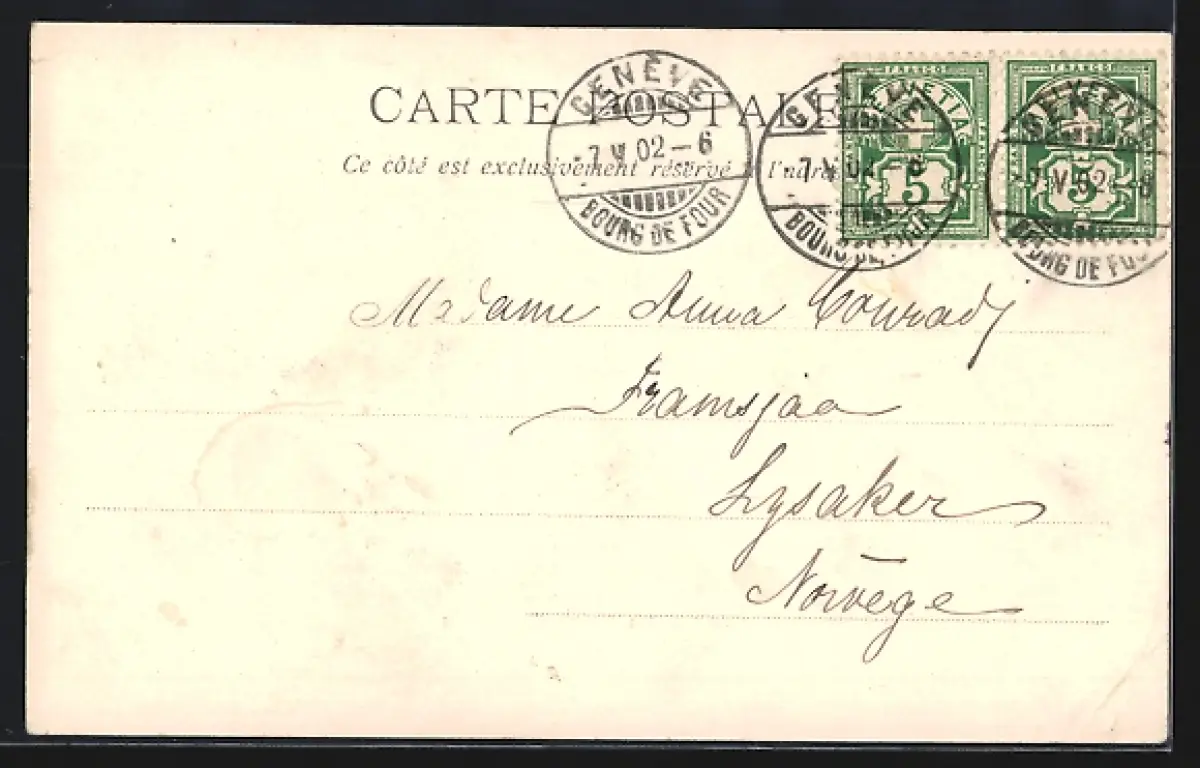 CARTE POSTALE
Ce côté est exclusivement réservé à l'adre
GENÈVE
-7.V.02-6
BOURG DE FOUR
GENÈVE
-7.V.02-6
BOURG DE FOUR
GENÈVE
-7.V.02-6
BOURG DE FOUR
FRANCO
HELVETIA
5
FRANCO
HELVETIA
5
Madame Anna Conradj
Framsjaa
Lysaker
Norvège